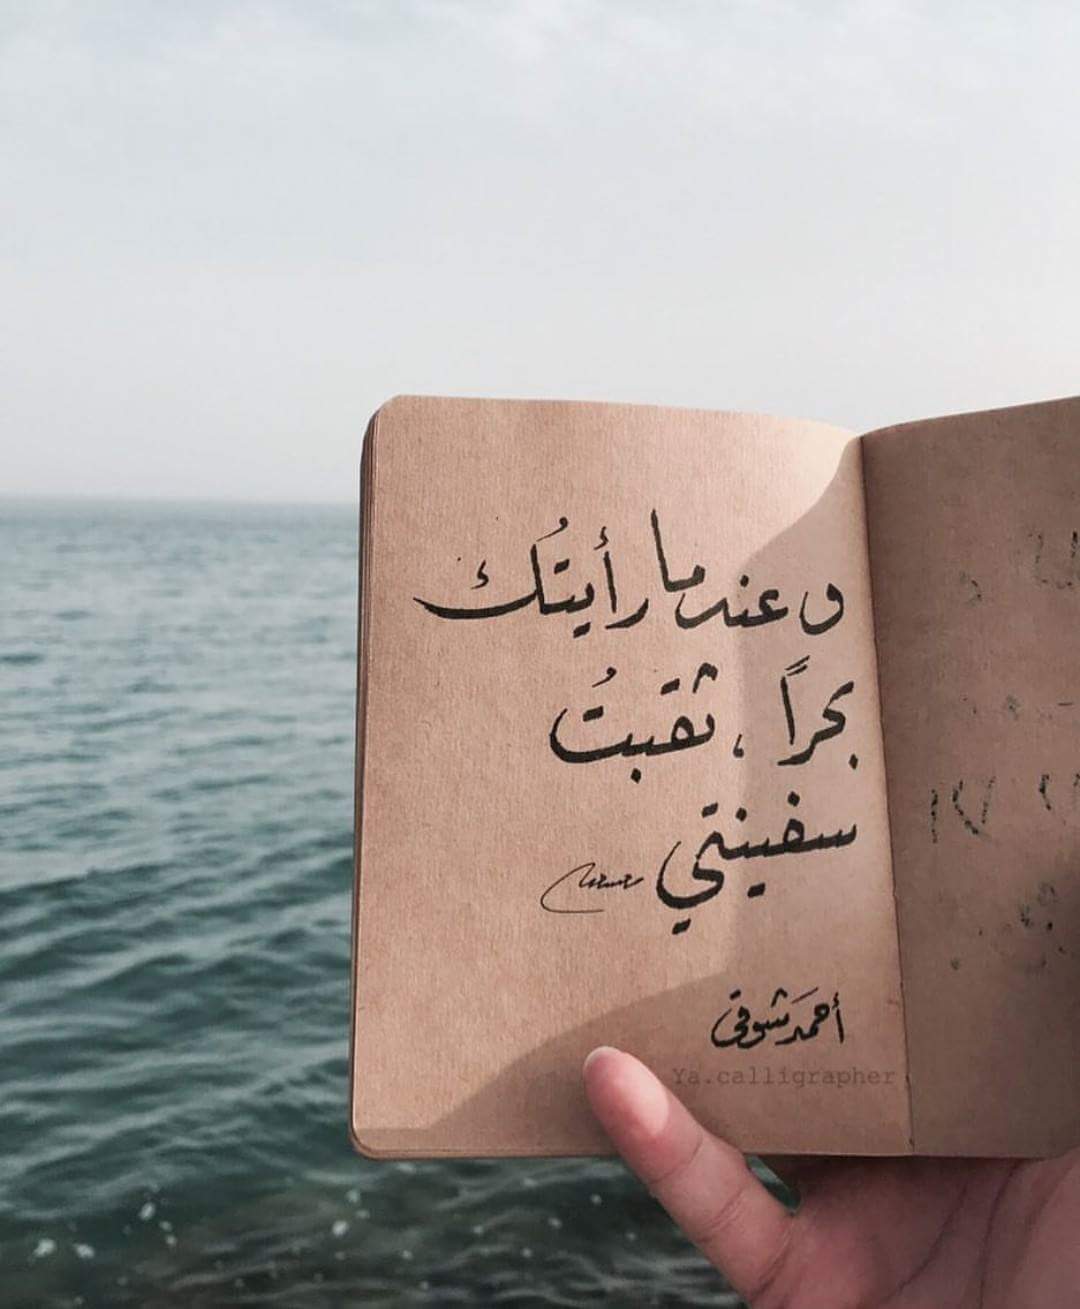 وعندما رأيتُك
بحراً ، ثقبتُ
سفينتي
أحمد شوقي
Ya.calligrapher